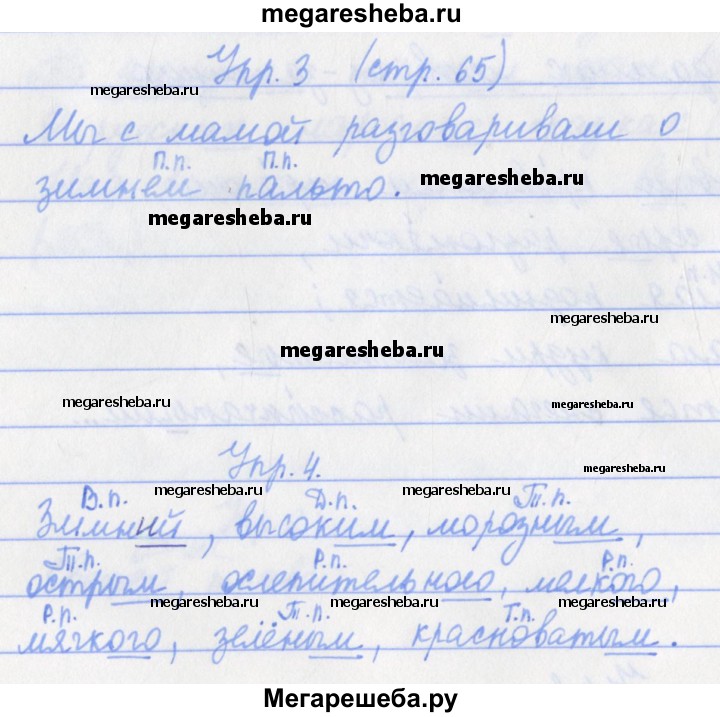 megaresheba.ru
Упр. 3 (стр. 65)
megaresheba.ru
Мы с мамой разговаривали о
П.п. П.п.
зимнем пальто.
megaresheba.ru
megaresheba.ru
megaresheba.ru
megaresheba.ru
megaresheba.ru
megaresheba.ru
megaresheba.ru
Упр. 4.
megaresheba.ru
megaresheba.ru
megaresheba.ru
В.п. Д.п. Т.п.
Зимний, высоким, морозным,
Т.п. Р.п. Р.п.
острым, ослепительного, мелкого,
megaresheba.ru
megaresheba.ru
megaresheba.ru
Р.п. Т.п. Т.п.
мягкого, зелёным, красноватым.
Мегарешеба.ру